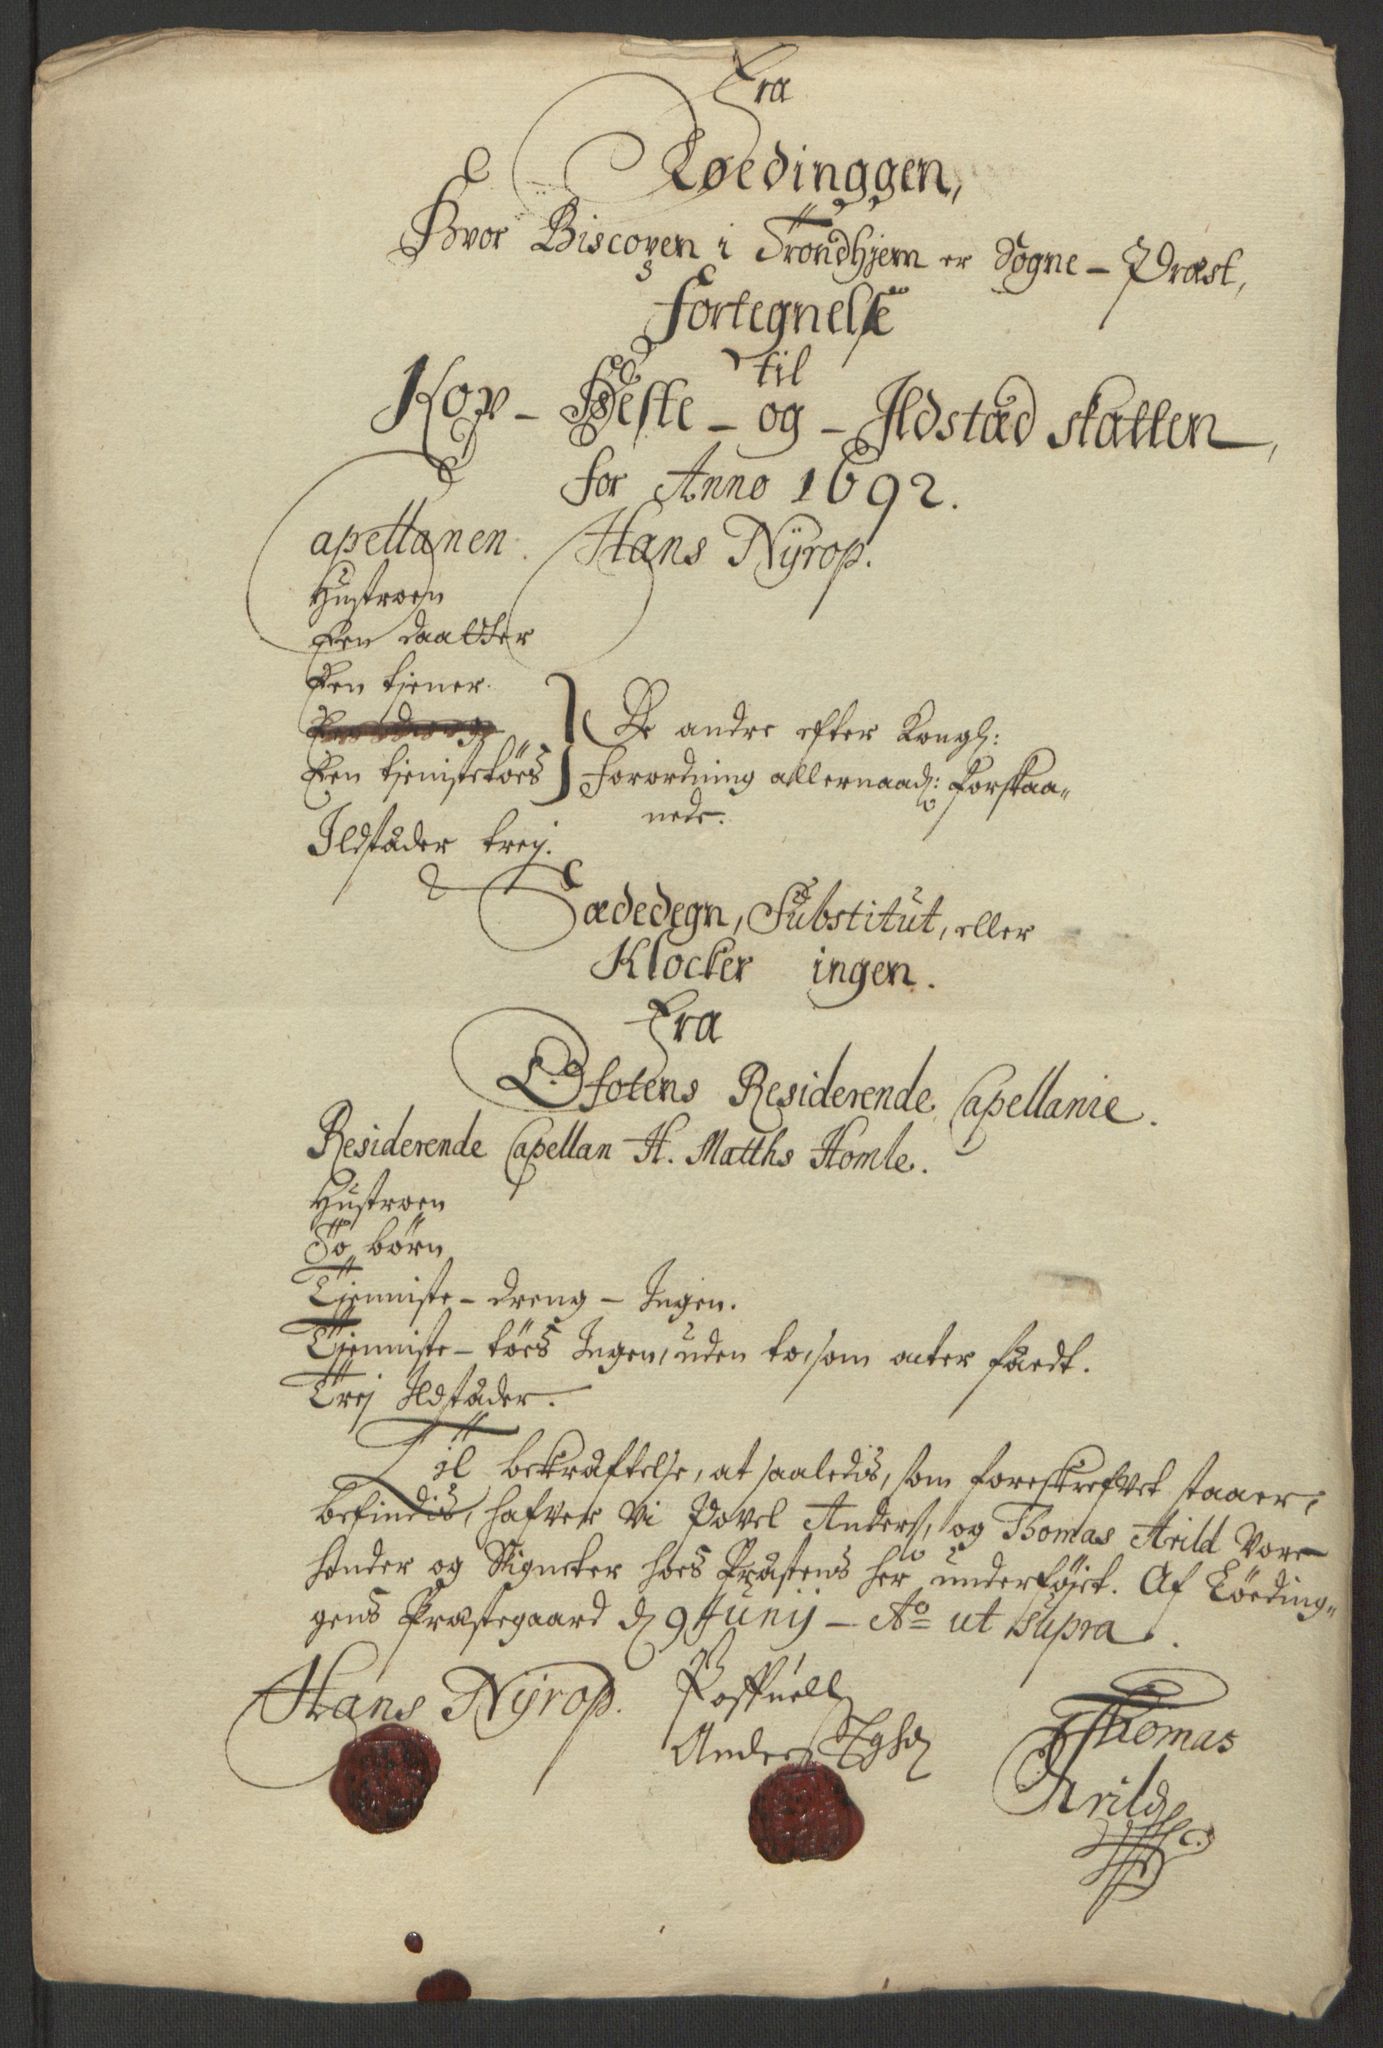 Fra
Løedinggen,
Hvor Biscopen i Trondhjem er Sogne - Præst,
Fortegnelse
til
Kop - Heste - og - Ildstæd skatten,
for Anno 1692.
Capellanen Hans Nÿrop.
Hustroen
Een daatter
Een tiener.
Een tienistetøes
De andre efter Kongl:
forordning allernaad: forskaa„
nede.
Ildstæder trej.
Sædedegn, Substitut, eller
Klocker ingen.
Fra
Ofotens Residerende Capellanie.
Residerende Capellan H. Matths Homle.
Hustroen
Sø børn
Tienniste - dreng - Ingen.
Tienniste - tøes Ingen, uden to, som ater fædt.
Trej Ildstæder.
Til bekræftelse, at saaledis, som foreskrefvet staaer,
befindis, hafver vi Povel Anders, og Thomas Arild vore
hender og Signeter hoes Præstens her underføjet. Af Løeding„
gens Præstegaard d 9 Junij - Ao ut supra.
Hans Nÿrop.
Poffuell
Anders
Thomas
Arild